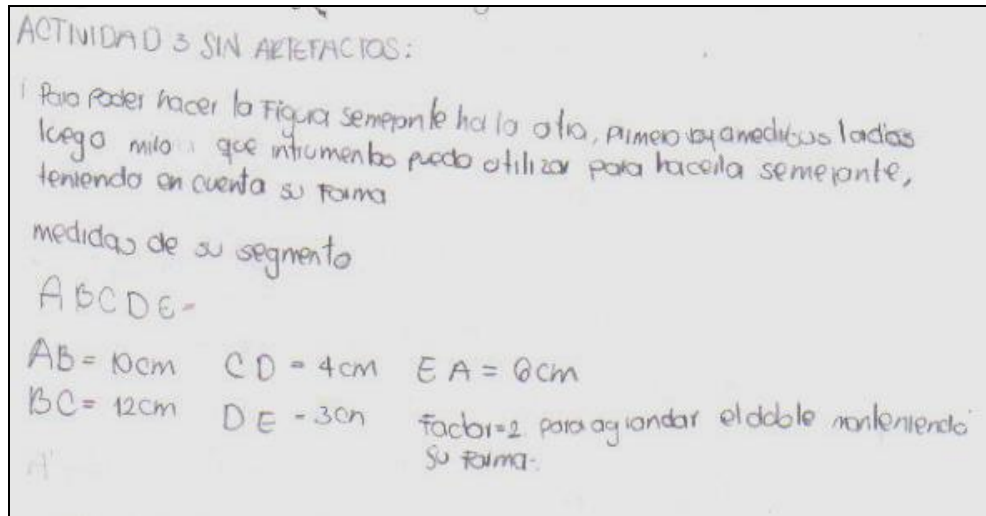 ACTIVIDAD 3 SIN ARTEFACTOS:
Para Poder hacer la Figura semejante ha la otra, primero voy a medir sus lados
luego miro que intrumentos puedo utilizar para hacerla semejante,
teniendo en cuenta su Forma
medidas de su segmento
ABCDE=
AB= 10cm CD = 4cm EA = 6cm
BC= 12cm DE = 3cm Factor=2 para agrandar el doble manteniendo
su Forma.
A'